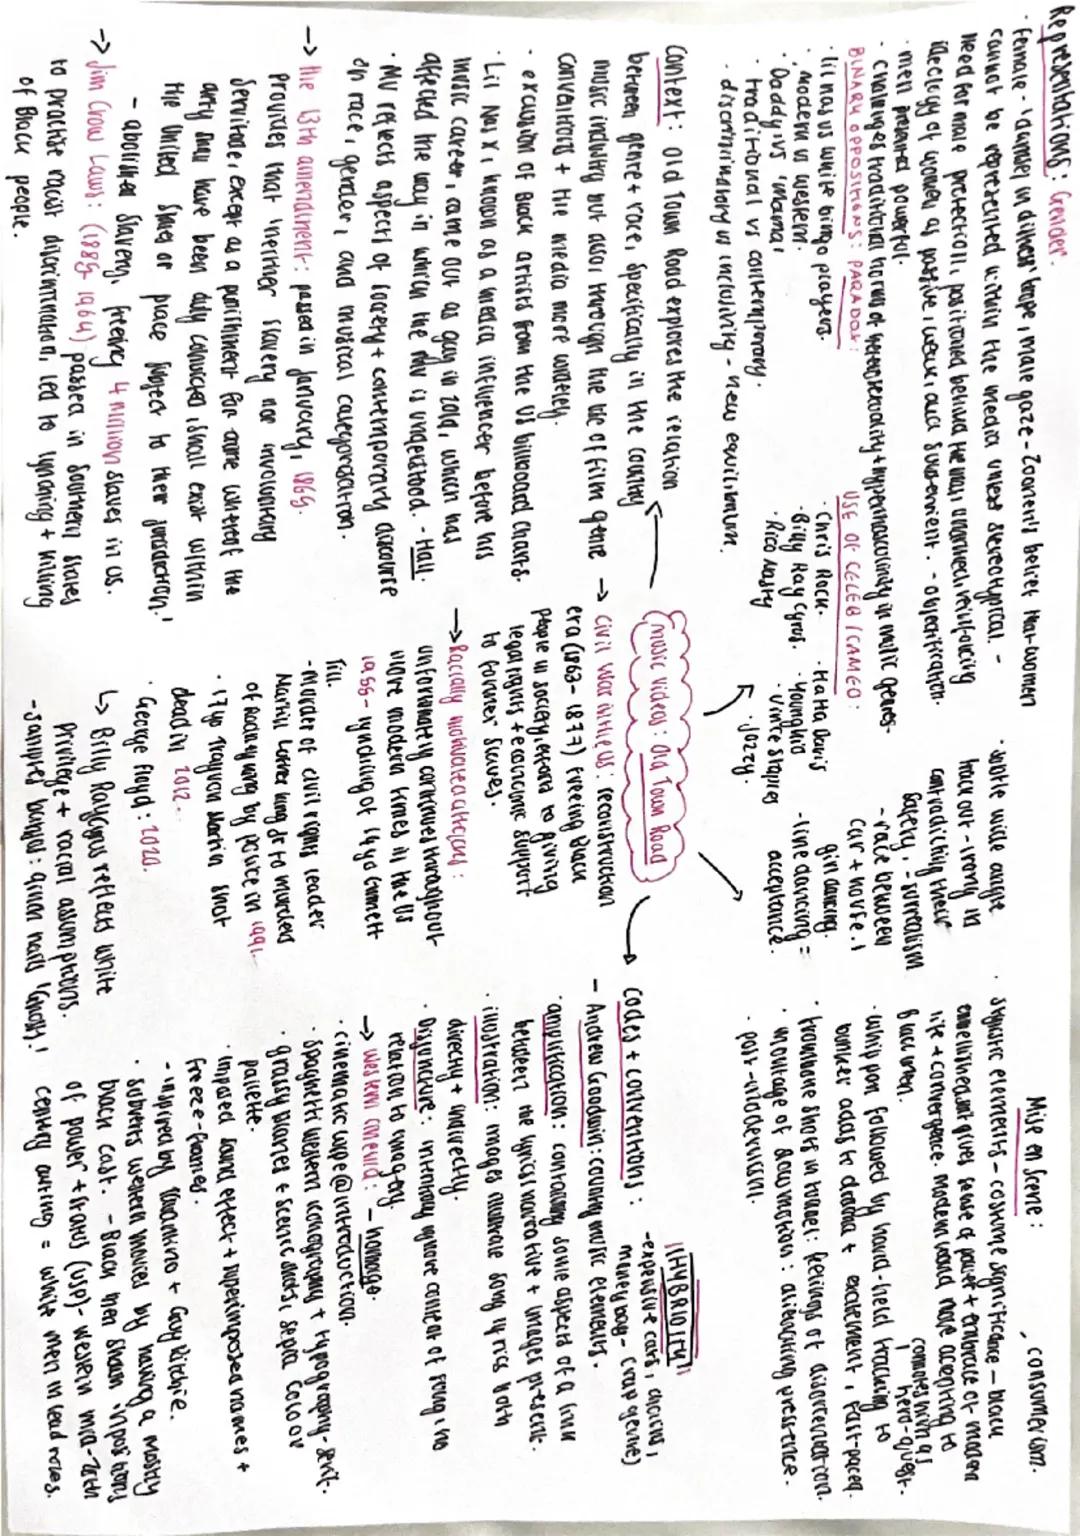 Representations: Gender.
· female - 'damsel in distress' trope, male gaze - Zoonen's belief that women
cannot be represented within the media unless stereotypical. -
need for male protection, positioned behind the man unarmed, reinforcing
ideology of women as passive, weak, and subservient. - objectification.
· men powerful.
· challenges traditional norms of heterosexuality + hypermasculinity in music genres-
BINARY OPPOSITIONS: PARADOX:
· lil nas vs white bingo players.
· modern vs western.
· 'Daddy' vs 'mama'
· traditional vs contemporary.
· discriminatory vs inclusivity - new equilibrium.
USE OF CELEB / CAMEO:
· Chris Rock.
· Billy Ray Cyrus.
· Rico nasty
· HaHa Davis
· Youngkio
· Vince Staples
· Jozzy.
· Wide angle
track out - irony in
contradicting their
safety, - surrealism
- race between
car + horse.
gin dancing.
- line dancing =
acceptance.
Mise en scene:
, consumerism.
· stylistic elements - costume significance - black
embellishment gives sense of power + embrace of modern
life + convergence. Modern world now accepting to
Black men.
connotes him as
hero - quest.
· whip pan followed by hand-held tracking to
bunker adds to drama + excitement, fast-paced.
· trombone shots in tunnel: feelings of disorientation.
· montage of slow motion: alienating presence.
· post-modernism.
music videos: Old Town Road
Context: Old Town Road explores the relation
between genre + race, specifically in the country
music industry but also through the use of film genre
conventions + the media more widely.
· exclusion of Black artists from the US billboard charts.
· Lil Nas X, known as a media influencer before his
music career, came out as gay in 2019, which has
affected the way in which the mv is understood. - Hall.
· MV reflects aspects of society + contemporary discourse
on race, gender, and musical categorisation.
→ the 13th amendment: passed in January, 1865.
Provides that 'neither slavery nor involuntary
servitude, except as a punishment for crime whereof the
party shall have been duly convicted, shall exist within
the United States or place subject to their jurisdiction.'
- abolished slavery, freeing 4 million slaves in US.
→ Jim Crow Laws: (1885-1964) passed in southern states
to practise racist discrimination, led to lynching + killing
of Black people.
→ Civil War in the US: reconstruction
era (1863-1877) freeing Black
people in society, efforts to giving
legal rights + economic support
to former slaves.
→ Racially motivated attacks:
unfortunately continues throughout
more modern times in the US
1955 - lynching of 14 yo Emmett
Till.
- Murder of civil rights leader
Martin Luther King Jr to murders
of Rodney King by police in 1991.
· 17 yo Trayvon Martin shot
dead in 2012.
· George Floyd: 2020.
↳ Billy Ray Cyrus reflects white
Privilege + racial assumptions.
- sampled banjo: nine inch nails 'Ghosts'.
Codes + conventions:
- Andrew Goodwin: country music elements.
!!HYBRIDITY!!
- expensive cars, choirs,
money bag - (rap genre)
· amplification: containing some aspects of a link
between the lyrics/narrative + images present.
· illustration: images illustrate song lyrics both
directly + indirectly.
· Disjuncture: intentionally ignore content of song, no
relation to imagery.
→ Western cinema: - homage.
· cinematic wipe @ introduction.
· spaghetti western iconography + typography - serif.
· grassy planes + scenic shots, sepia colour
palette.
· imposed sound effect + superimposed names +
freeze-frames.
- inspired by Tarantino + Guy Ritchie.
· subverts western movies by having a mostly
black cast. - Black men shown in positions
of power + status (USP) - western mid-20th
century casting = white men in lead roles.